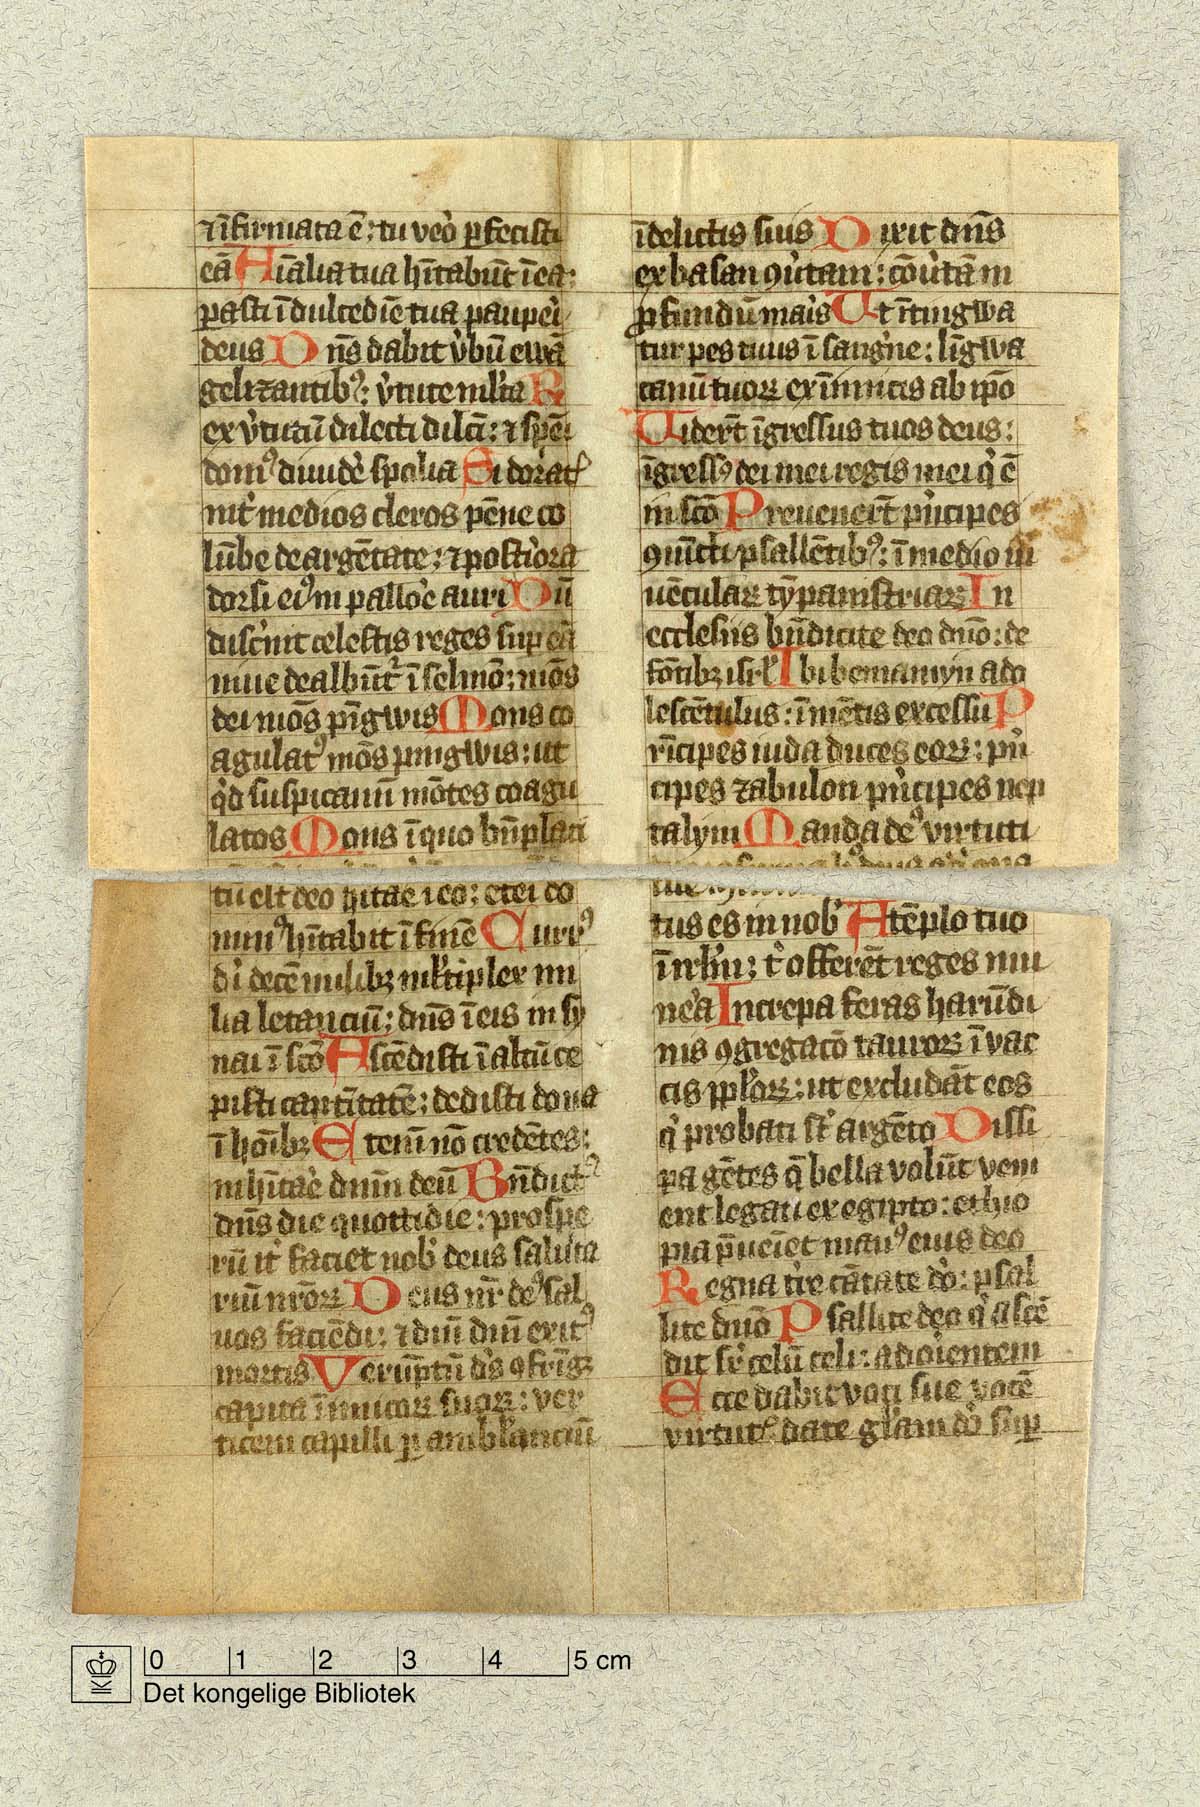 ⁊ īfirmata ē: tu vero ꝑfecisti
eā Aīalia tua hītabūt ī ea:
pasti ī dulcedīe tua pauperi
deus Dn̄s dabit v̓bū ewā
gelizantibꝰ: v̓tute ml̓ta R
ex v̓tutū dilecti dilc̄i: ⁊ spēi
domꝰ diuide̓ spolia Si dormiat̓
nit̓ medios cleros pēne co
lūbe deargētate: ⁊ posterīora
dorsi eiꝰ in pallore auri Dū
disc̓nit celestis reges suꝑ eā
niue dealbūt̓ ī selmō: mōs
dei mōs pīgwis Mons co
agulatꝰ mōs pingwis: ut
qͥd suspicamī mōtes coagu
latos Mons ī quo bn̄placi
tū est deo hītae̓ ī eo: etei do
minꝰ hītabit ī finē Currꝰ
dī decē milibꝫ ml̓tiplex mi
lia letanciū: dn̄s ī eis in sy
nai ī scō Ascēdisti ī altū ce
pisti captītatē: dedisti dona
ī hoībꝫ Etenī nō credētes:
īhītae̓ dnm̄ deū Bn̄dictꝰ
dn̄s die quottidie: prospe
rū it̓ faciet nob̓ deus saluta
riū nr̄oꝝ Deus nr̄ deꝰ sal
uos faciēdi: ⁊ dnī dnī exitꝰ
mortis Verūptn̄ ds̓ ꝯfrīgꝫ
capita īimicoꝝ suoꝝ: ver
ticem capilli ꝑambl̓anciū
ī delictis suis Dixit dn̄s
ex basan ꝯv̓tam: cōv̓tā in
ꝓfundū maris Ut ītingwa
tur pes tuus ī sang̓ne: līgwa
canū tuoꝝ ex īimicis ab ip̄o
Uidert̄ īgressus tuos deus:
īgressꝰ dei mei regis mei qͥ ē
in scō Preuenert̄ pͥncipes
ꝯiūcti psallētibꝰ: ī medio iu
uēculaꝝ tȳpanistriaꝝ In
ecclesiis bn̄dicite deo dnō: de
fōtibꝫ isrl̓ Ibi beniamyn ado
lescētulus: ī mētis excessu P
rīcipes iuda duces eoꝝ: pͥn
cipes zabulon pͥncipes nep
talym Manda deꝰ virtuti
tus es in nob̓ A tēplo tuo
ī irl̓m: t̓ offerēt reges mu
nea̓ Increpa feras harūdi
nis ꝯgregacō tauroꝝ ī vac
cis ppl̓oꝝ: ut excludāt eos
qͥ probati st̄ argēto Dissi
pa gētes q̄ bella volūt veni
ent legati ex egipto: ethio
pia p̄ueiet manꝰ eius deo
Regna tr̓e cātate do̓: psal
lite dnō Psallite deo qͥ ascē
dit sr̓ celū celi: ad oientem
Ecce dabit voci sue vocē
virtutꝭ date gl̓iam do̓ suꝑ